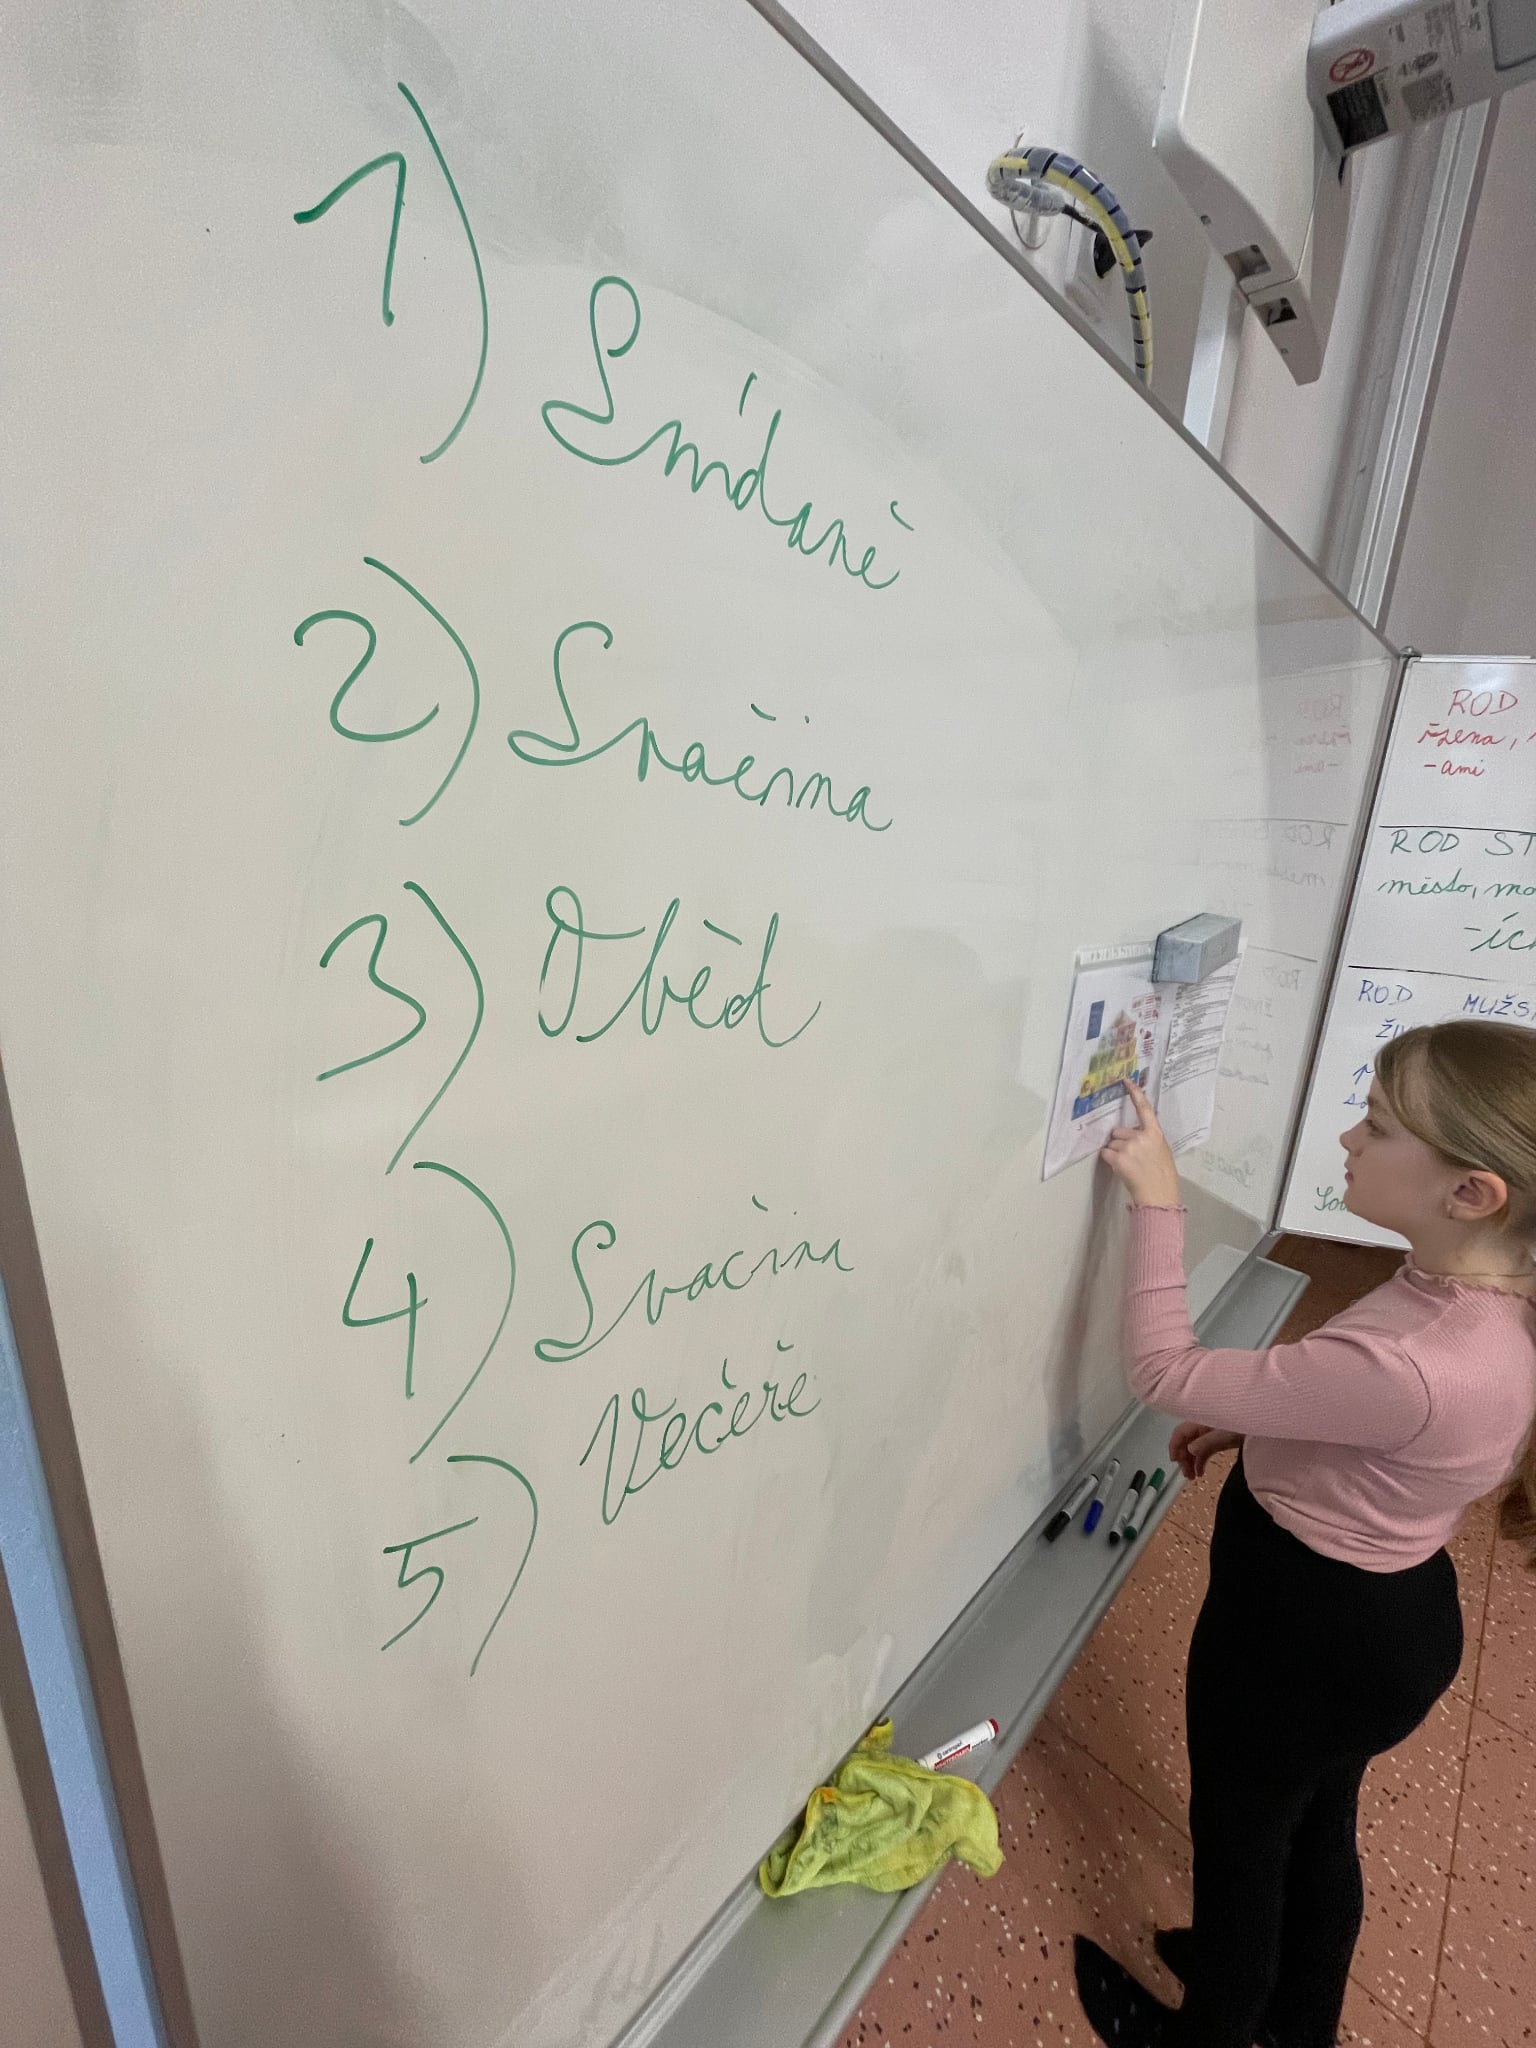 1) Snídaně
2) Svačina
3) Oběd
4) Svačina
5) Večeře
ROD
žena,
-ami
ROD ST
město, mo
-ích
ROD MUŽS